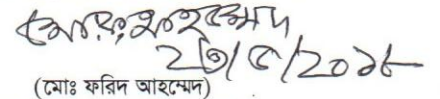 ২৩/৫/২০১৮
(মোঃ ফরিদ আহম্মেদ)